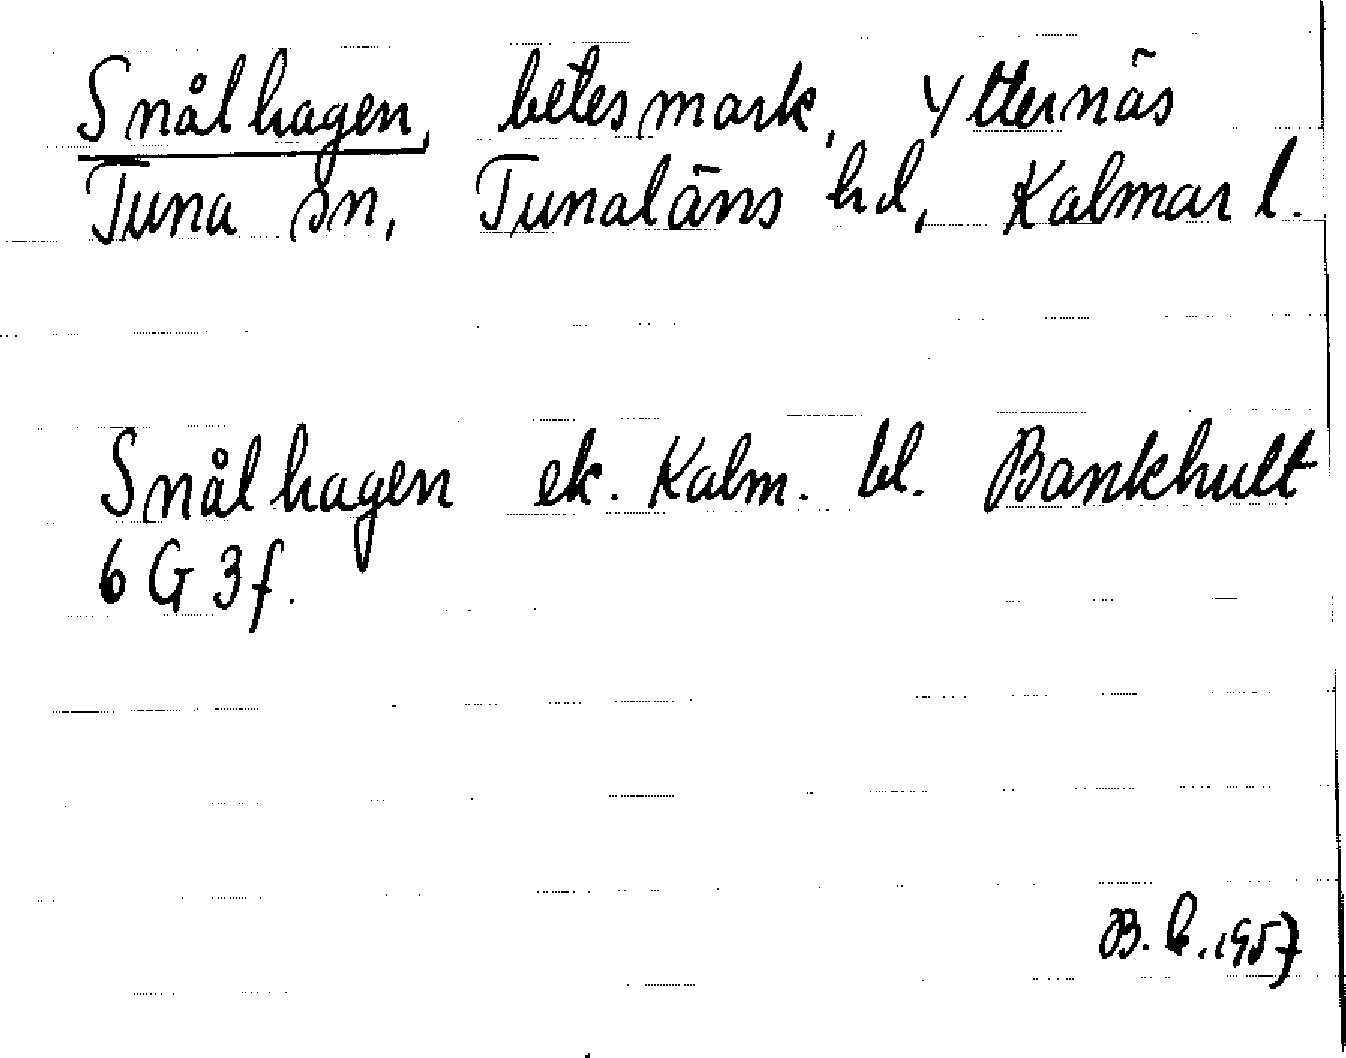 Snålhagen, betesmark, Ytternäs
Tuna sn, Tunaläns hd, Kalmar l.
Snålhagen ek. Kalm. bl. Bankhult
6 G 3f.
B. L. 1957